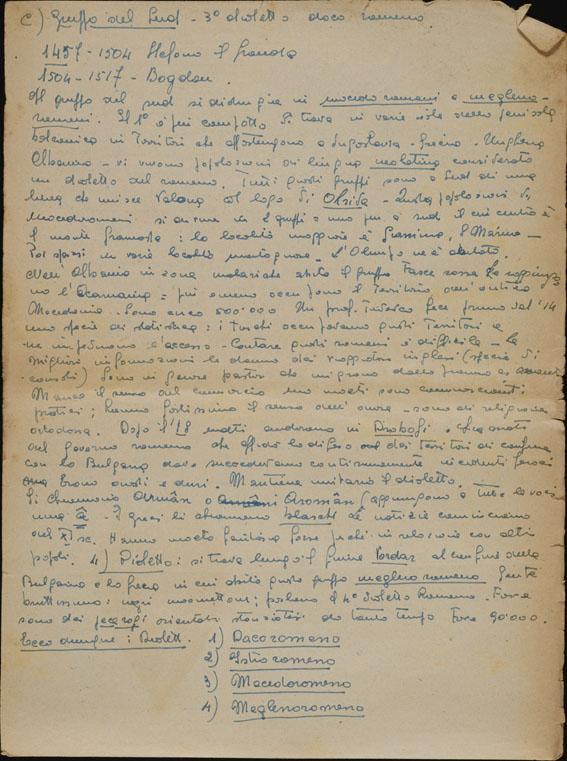 C) Gruppo del Sud - 3° dialetto daco romeno
1457 - 1504 Stefano il Grande
1504 - 1517 - Bogdan.
Il gruppo del sud si distingue in macedo romeni e megleno-
romeni. Il 1° è più compatto. Si trova in varie isole nella penisola
balcanica in territori che appartengono a Jugoslavia - Grecia - Ungheria
Albania - vi vivono popolazioni di lingua neolatina considerata
un dialetto del romeno. Tutti questi gruppi sono a Sud di una
linea che unisce Valona col lago di Ohrida - Questa popolazione di
Macedoromeni si divide in 2 gruppi: uno più a sud il cui centro è
il monte Grammosta: la località maggiore è
Poi sparsi in varie località montagnose - L'Olimpo ne è abitato.
Nell'Albania in zona malariche abita il gruppo
no l'Acarnania: più o meno occupano il territorio dell'antica
Macedonia. Sono circa 500'000. Un prof. tedesco fece prima del '14
una specie di statistica: i Turchi occupavano questi territori e
ne impedivano l'accesso - Contare questi romeni è difficile - Le
migliori informazioni le danno dei viaggiatori inglesi (specie di
consoli) Sono in genere pastori che migrano dalla pianura ai monti
il senso del commercio ma molti sono commercianti:
pratici; hanno fortissimo il senso dell'onore - sono di religione
ortodossa. Dopo il '18 molti andarono in Dobrogia
del governo romeno che affidò la difesa dei territori di confine
con la Bulgaria dove succedevano continuamente incidenti feroci
Erano ardi e duri. Mantiene unitario il dialetto.
Si chiamano Armân o Aromân (aggiungono a tutte le voci
una â - I greci li chiamano blachi. Le notizie cominciano
dal XI sec. Hanno molta fantasia forse perché in relazione con altri
popoli. 4) Dialetto: si trova lungo il fiume Vardar al confine della
Bulgaria e la Grecia in cui abita questo gruppo megleno romeno. Gente
bruttissima: oggi maomettani; parlano il 4° dialetto Romeno. Forse
sono dei orientali stanziati da tanto tempo. Forse 90'000.
Ecco dunque i Dialetti. 1) Dacoromeno
2) Istroromeno
3) Macedoromeno
4) Meglenoromeno